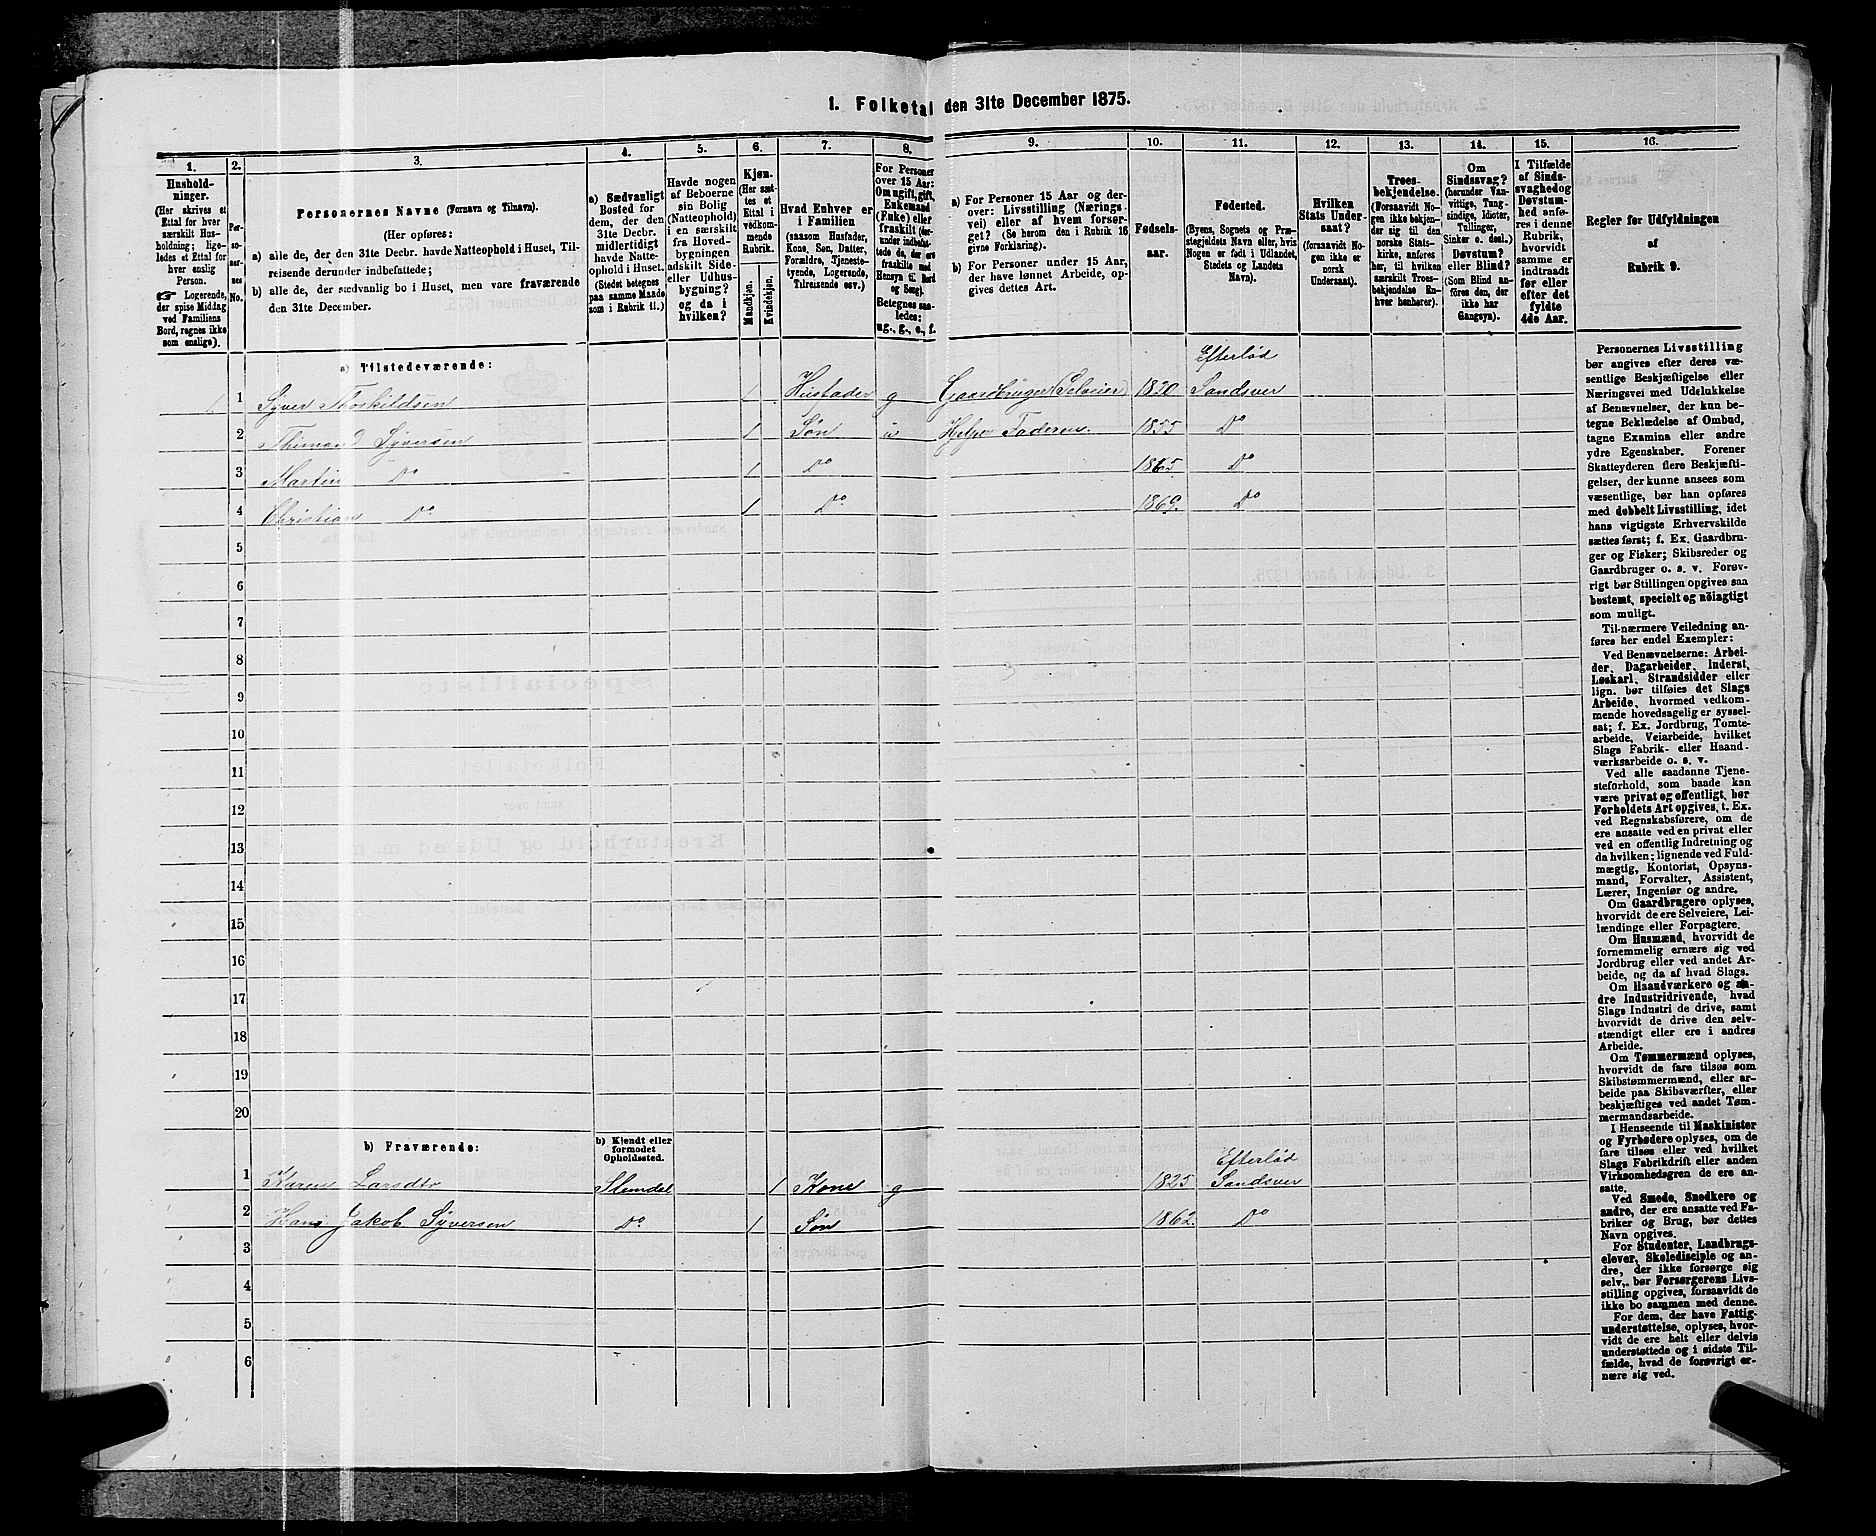 1. Folketal den 31te December 1875.
1. 2. 3. 4. 5. 6. 7. 8. 9. 10. 11. 12. 13. 14. 15. 16.
Hushold-
ninger.
(Her skrives et
Ettal for hver
særskilt Hus-
holdning; lige-
ledes et Ettal for
hver enslig
Person.
☞ Logerende,
der spise Middag
ved Familiens
Bord, regnes ikke
som enslige).
Per-
so-
ner-
nes
No.
Personernes Navne (Fornavn og Tilnavn).
(Her opføres:
a) alle de, der den 31te Decbr. havde Natteophold i Huset, Til-
reisende derunder indbefattede;
b) alle de, der sædvanlig bo i Huset, men vare fraværende
den 31te December.
a) Sædvanligt
Bosted for
dem, der den
31te Decbr.
midlertidigt
havde Natte-
ophold i Huset.
(Stedet betegnes
paa samme Maade
som i Rubrik 11.)
Havde nogen
af Beboerne
sin Bolig
(Natteophold)
i en særskilt
fra Hoved-
bygningen
adskilt Side-
eller Udhus-
bygning?
og da i
hvilken?
Kjøn.
(Her sæt-
tes et
Ettal i
vedkom-
mende
Rubrik.
Mandkjøn.
Kvindekjøn.
Hvad Enhver er
i Familien
(saasom Husfader,
Kone, Søn, Datter,
Forældre, Tjeneste-
tyende, Logerende,
Tilreisende osv.)
For Personer
over 15 Aar:
Om ugift, gift,
Enkemand
(Enke) eller
fraskilt (der-
under indbefat-
tede de, der ere
fraskilte med
Hensyn til Bord
og Seng).
Betegnes saa-
ledes:
ug., g., e., f.
a) For Personer 15 Aar og der-
over: Livsstilling (Nærings-
vei) eller af hvem forsør-
get? (Se herom den i Rubrik 16
givne Forklaring).
b) For Personer under 15 Aar,
der have lønnet Arbeide, op-
gives dettes Art.
Fødsels-
aar.
Fødested.
(Byens, Sognets og Præ-
stegjeldets Navn eller, hvis
Nogen er født i Udlandet,
Stedets og Landets
Navn).
Hvilken
Stats Under-
saat?
(forsaavidt No-
gen ikke er
norsk
Undersaat).
Troes-
bekjendelse.
(Forsaavidt No-
gen ikke bekjen-
der sig til den
norske Stats-
kirke, anføres
her, til hvilken
særskilt Troes-
bekjendelse En-
hver henhører).
Om
Sindssvag?
(herunder Van-
vittige, Tung-
sindige, Idioter,
Tullinger,
Sinker o. desl.)
Døvstum?
eller Blind?
(Som Blind an-
føres den, der
ikke har
Gangsyn).
I Tilfælde
af Sinds-
svaghed og
Døvstum-
hed anfø-
res i denne
Rubrik,
hvorvidt
samme er
indtraadt
før eller
efter det
fyldte
4de Aar.
Regler for Udfyldningen
af
Rubrik 9.
a) Tilstedeværende:
Efterlød
1 1 Syver Thorkildsen 1 Husfader g Gaardbruger (Selveier) 1820 Sandsver
2 Thimand Syversen 1 Søn u Hjelper Faderen. 1855 Do
3 Martin Do 1 Do 1865 Do
4 Christian Do 1 Do 1869. Do
5
6
7
8
9
10
11
12
13
14
15
16
17
18
19
20
b) Fraværende:
b) Kjendt eller
formodet
Opholdssted.
Efterlød
1 Karen Larsdtr Slemdal 1 Kone g 1825 Sandsver
2 Hans Jakob Syversen Do 1 Søn 1862. Do
3
4
5
6
Personernes Livsstilling
bør angives efter deres væ-
sentlige Beskjæftigelse eller
Næringsvei med Udelukkelse
af Benævnelser, der kun be-
tegne Beklædelse af Ombud,
tagne Examina eller andre
ydre Egenskaber. Forener
Skatteyderen flere Beskjæfti-
gelser, der kunne ansees som
væsentlige, bør han opføres
med dobbelt Livsstilling, idet
hans vigtigste Erhvervskilde
sættes først; f. Ex. Gaardbru-
ger og Fisker; Skibsreder og
Gaardbruger o. s. v. Forøv-
rigt bør Stillingen opgives saa
bestemt, specielt og nøiagtigt
som muligt.
Til nærmere Veiledning an-
føres her endel Exempler:
Ved Benævnelserne: Arbei-
der, Dagarbeider, Inderst,
Løskarl, Strandsidder eller
lign. bør tilføies det Slags
Arbeide, hvormed vedkom-
mende hovedsagelig er syssel-
sat; f. Ex. Jordbrug, Tomte-
arbeide, Veiarbeide, hvilket
Slags Fabrik- eller Haand-
værksarbeide o. s. v.
Ved alle saadanne Tjene-
steforhold, som baade kan
være privat og offentligt, bør
Forholdets Art opgives, t. Ex.
ved Regnskabsførere, om de
ere ansatte ved en privat eller
ved en offentlig Indretning og
da hvilken; lignende ved Fuld-
mægtig, Kontorist, Opsyns-
mand, Forvalter, Assistent,
Lærer, Ingeniør og andre.
Om Gaardbrugere oplyses,
hvorvidt de ere Selveiere, Lei-
lændinge eller Forpagtere.
Om Husmænd, hvorvidt de
fornemmelig ernære sig ved
Jordbrug eller ved andet Ar-
beide, og da af hvad Slags.
Om Haandværkere og an-
dre Industridrivende, hvad
Slags Industri de drive, samt
hvorvidt de drive den selv-
stændigt eller ere i andres
Arbeide.
Om Tømmermænd oplyses,
hvorvidt de fare tilsøs som
Skibstømmermænd, eller ar-
beide paa Skibsværfter, eller
beskjæftiges ved andet Tøm-
mermandsarbeide.
I Henseende til Maskinister
og Fyrbødere oplyses, om de
fare tilsøs eller ved hvilket
Slags Fabrikdrift eller anden
Virksomhedsgren de ere an-
satte.
Ved Smede, Snedkere og
andre, der ere ansatte ved Fa-
briker og Brug, bør dettes
Navn opgives.
For Studenter, Landbrugs-
elever, Skoledisciple og an-
dre, der ikke forsørge sig
selv, bør Forsørgerens Livs-
stilling opgives, forsaavidt de
ikke bo sammen med denne.
For dem, der have Fattig-
understøttelse, oplyses, hvor-
vidt de ere helt eller delvis
understøttede og i sidste Til-
fælde, hvad de forøvrigt er-
nære sig ved.